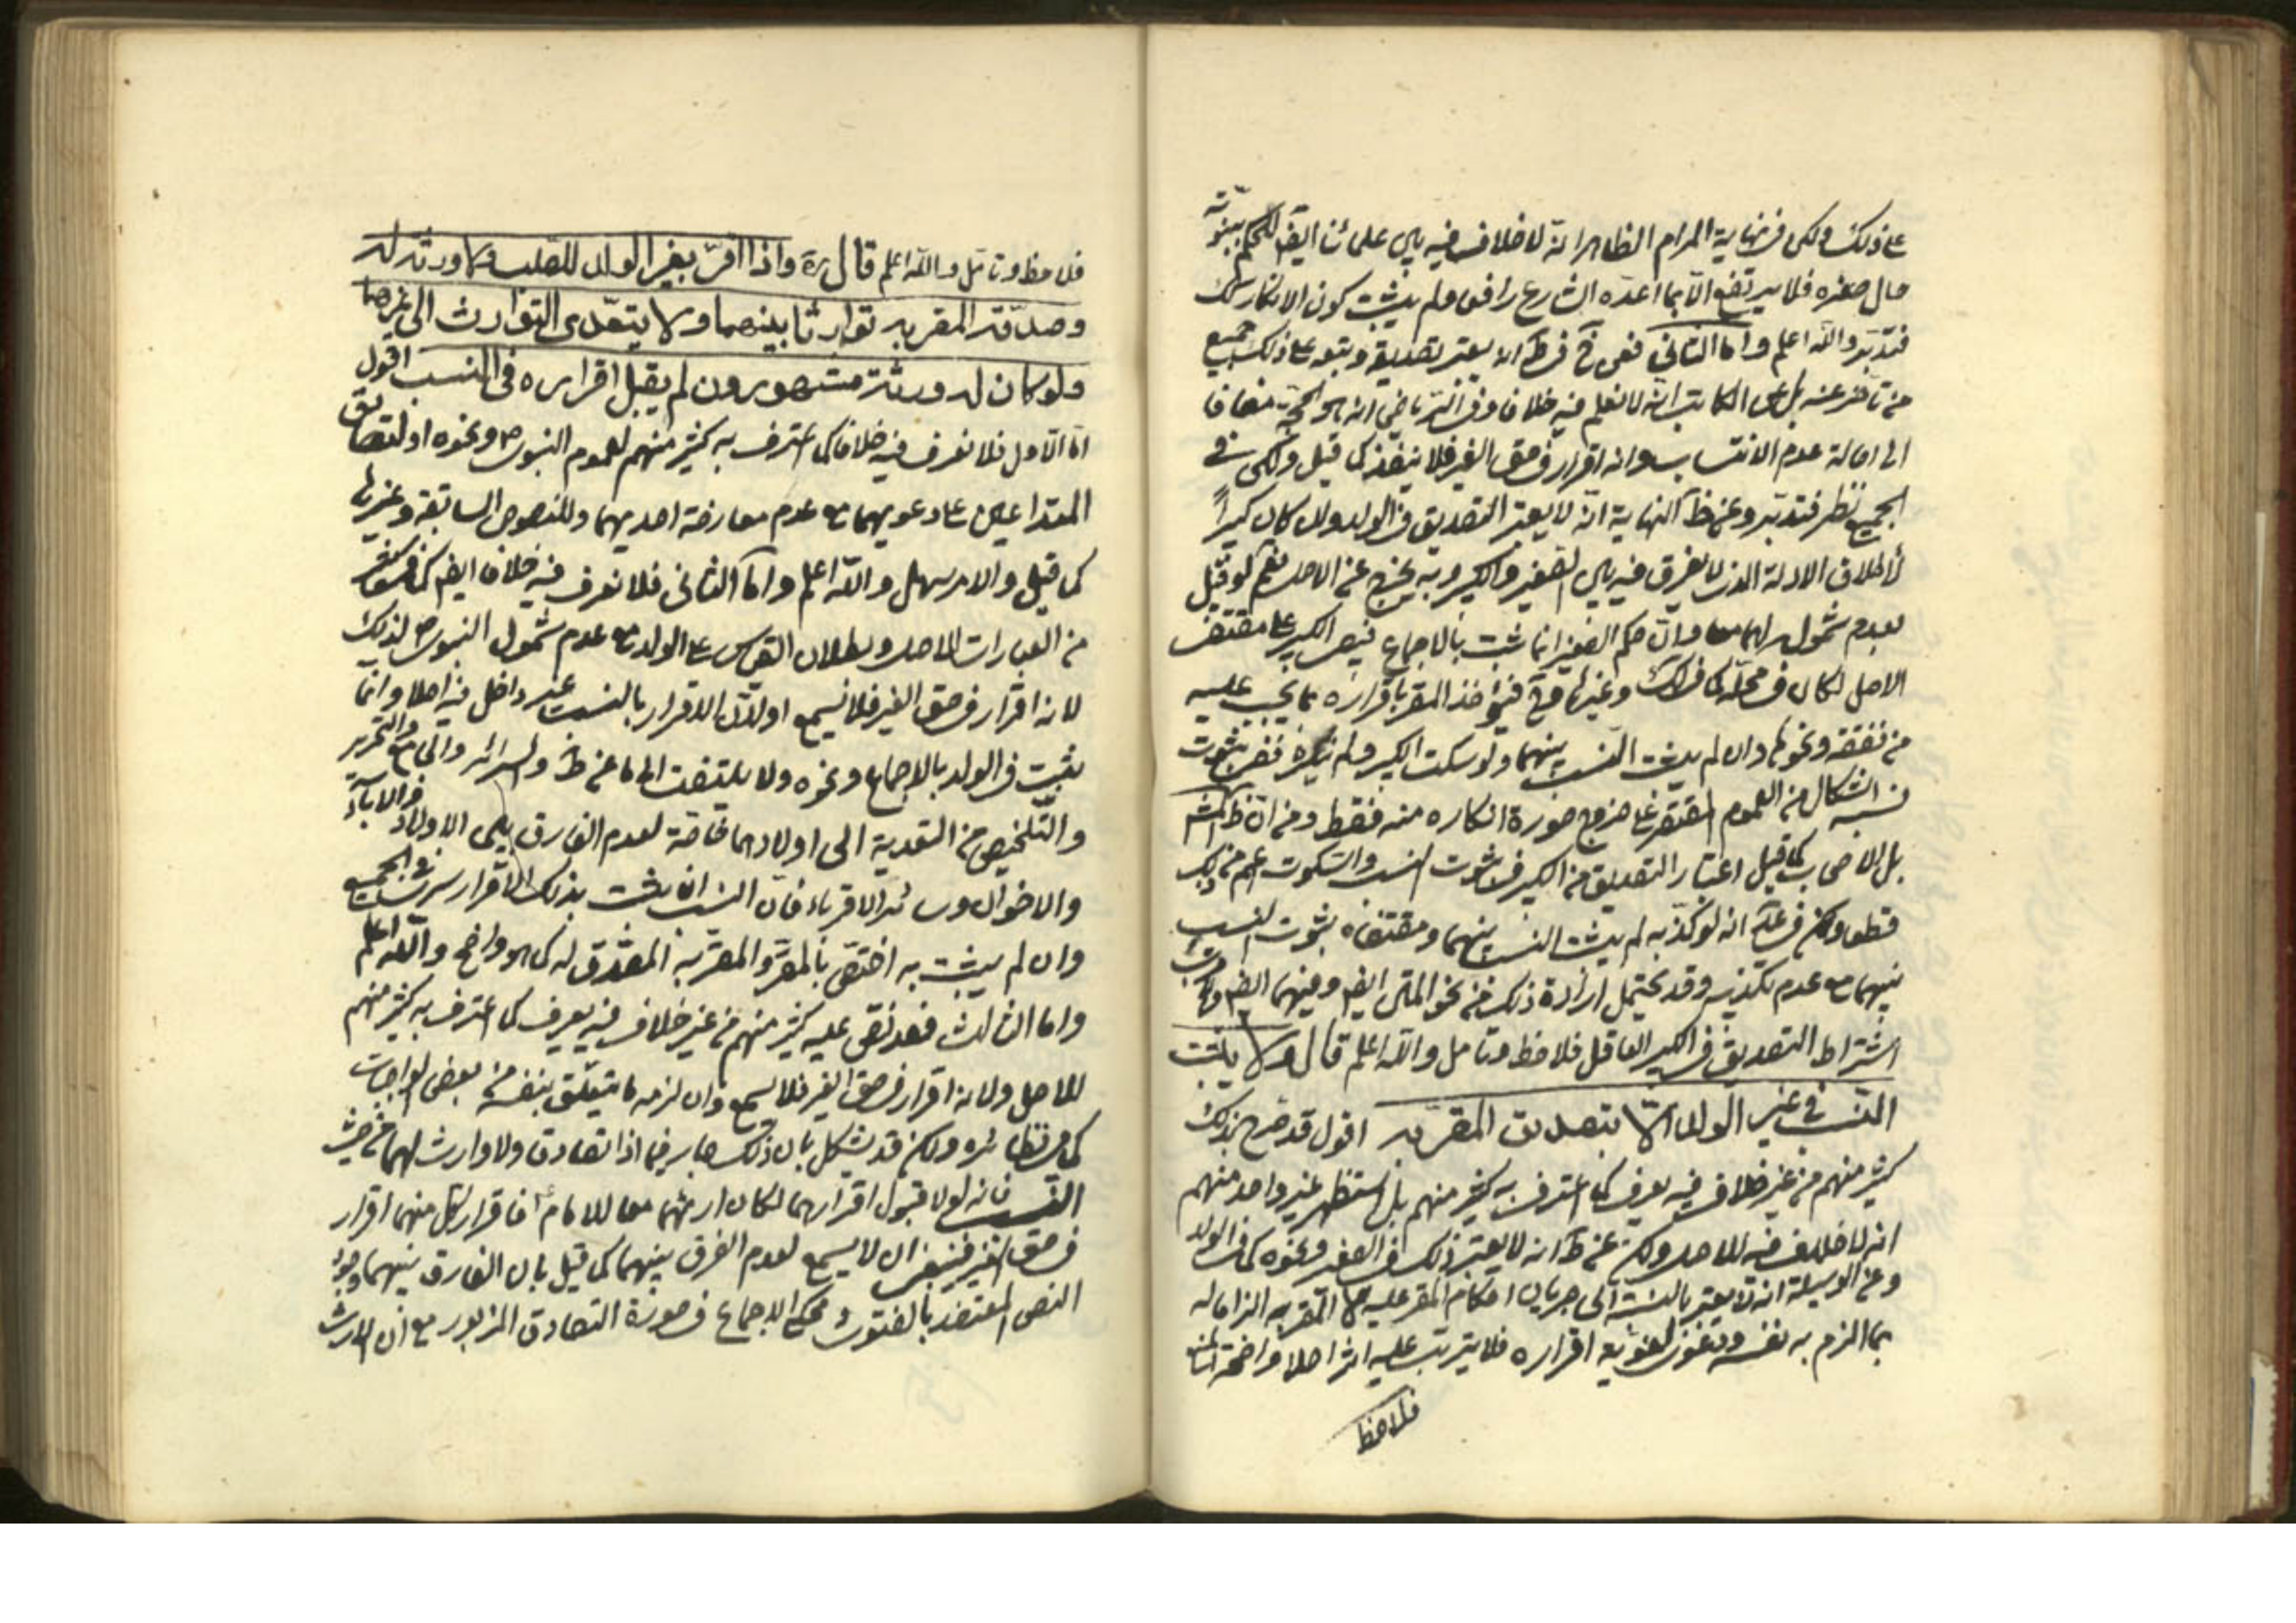 على ذلك ولكن في نهاية المرام الظاهر انه لا خلاف فيه بين علمائنا ايضا للحكم ببنوته
حال صغره فلا يرتفع الا بما اعده الشارع رافعا ولم يثبت كون الانكار كك
فتدبر والله اعلم واما الثاني فعن يعتبر تصديقه وتبعه على ذلك جميع
من تاخر عنه بل عن الكاتب انه لا نعلم فيه خلافا وفي الرياض انه هو الحجة مضافا
الى اصالة عدم الانتساب وانه اقرار في حق الغير فلا ينفذ كما قيل ولكن في
الجميع نظر فتدبر وعن ظ النهاية انه لا يعتبر التصديق في الولد ولو كان كبيراً
لاطلاق الادلة الذي لا يفرق فيه بين الصغير والكبير وبه يخرج عن الاصل نعم لو قيل
بعدم شمولـ لهما معا وان حكم الصغير انما ثبت بالاجماع فيبقى الكبير على مقتضى
الاصل لكان في محله كما في لك وغيرها فيؤاخذ المقر باقراره بما يجب عليه
من نفقة ونحوها وان لم يثبت النسب بينهما ولو سكت الكبير ولم ينكره ففي ثبوت
نسبه اشكال من العموم المقتصر على خروج صورة انكاره منه فقط ومن ان ظ
بل الاصحاب كما قيل اعتبار التصديق من الكبير في ثبوت النسب والسكوت اعم من ذلك
قطعا ولكن في انه لو كذبه لم يثبت النسب بينهما ومقتضاه ثبوت النسب
بينهما مع عدم تكذيبه وقد يحتمل ارادة ذلك من نحو المتن ايضا وفيهما ايضا
اشتراط التصديق في الكبير العاقل فلاحظ وتامل والله اعلم قال ولا يثبت
النسب في غير الولد الا بتصديق المقر به اقول قد صرح بذلك
كثير منهم من غير خلاف فيه يعرف كما اعترف به كثير منهم بل استظهر غير واحد منهم
انه لا خلاف فيه للاصل ولكن عن ظ انه لا يعتبر ذلك في الصغير ونحوه كما في الولد
وعن الوسيلة انه لا يعتبر بالنسبة الى جريان احكام المقر عليه المقر به الزاما له
بما الزم به نفسه لغوية اقراره فلا يترتب عليه اثر اصلا واضحة
فلاحظ
فلاحظ وتامل والله اعلم قال ره واذا اقر بغير الولد للصلب ولا ورثة له
وصدقه المقر به توارثا بينهما ولا يتعدى التوارث الى غيرهما
ولو كان له ورثة مشهورون لم يقبل اقراره في النسب اقول
اما الاول فلا نعرف فيه خلافا كما اعترف به كثير منهم لعموم النبوى ص ونحوه او لتصادق
المتداعيين على دعويهما مع عدم معارضة احد لهما وللنصوص السابقة وغيرها
كما قيل والامر سهل والله اعلم واما الثاني فلا نعرف فيه خلافا ايضا كما في كثير
من العبارات للاصل وبطلان القياس على الولد مع عدم شمول النبوى ص لذلك
لانه اقرار في حق الغير فلا يسمع اولان الاقرار بالنسب غير داخل فيه اصلا وانما
يثبت في الولد بالاجماع ونحوه ولا يلتفت الى ما عن ط والسرائر والجامع والتحرير
والتلخيص من التعدية الى اولادهما خاصة لعدم الفارق بين الاولاد والاباء
والاخوال وسائر الاقرباء فان النسب ان يثبت بذلك الاقرار سرى في الجميع
وان لم يثبت به اختص بالمقر والمقر به المصدق له كما هو واضح والله اعلم
واما الثالث فقد نص عليه كثير منهم من غير خلاف فيه يعرف كما اعترف به كثير منهم
للاصل ولانه اقرار في حق الغير فلا يسمع وان لزمه ما يتعلق بنفسه من بعض الواجبات
كما مر نظائره ولكن قد يشكل بان ذلك جار فيما اذا تصادقا ولا وارث لهما من حيث
النسب فانه لولا قبول اقرارهما لكان ارثهما معا للامام ع فاقرار كل منهما اقرار
في حق الغير فينبغي ان لا يسمع لعدم الفرق بينهما كما قيل بان الفارق بينهما وجود
النص المعتضد بالفتوى ومحكى الاجماع في صورة التصادق المزبور مع ان الارث